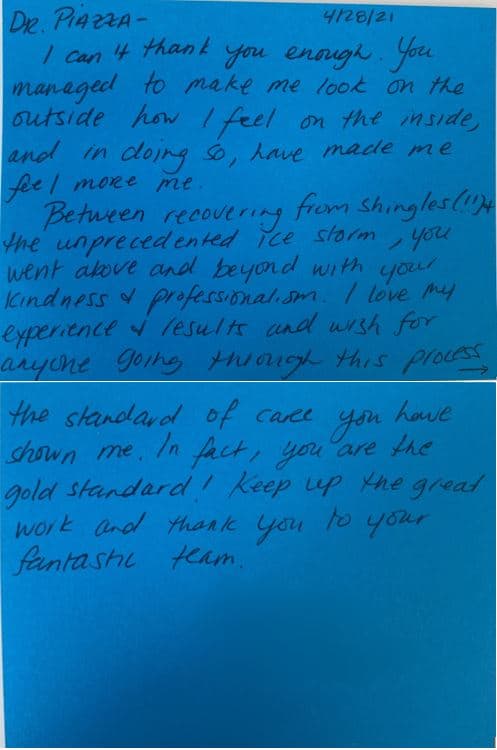 DR. PIAZZA - 4/28/21
I can't thank you enough. You
managed to make me look on the
outside how I feel on the inside,
and in doing so, have made me
feel more me.
Between recovering from shingles (!!) +
the unprecedented ice storm, you
went above and beyond with your
kindness & professionalism. I love my
experience & results and wish for
anyone going through this process →
the standard of care you have
shown me. In fact, you are the
gold standard! Keep up the great
work and thank you to your
fantastic team.